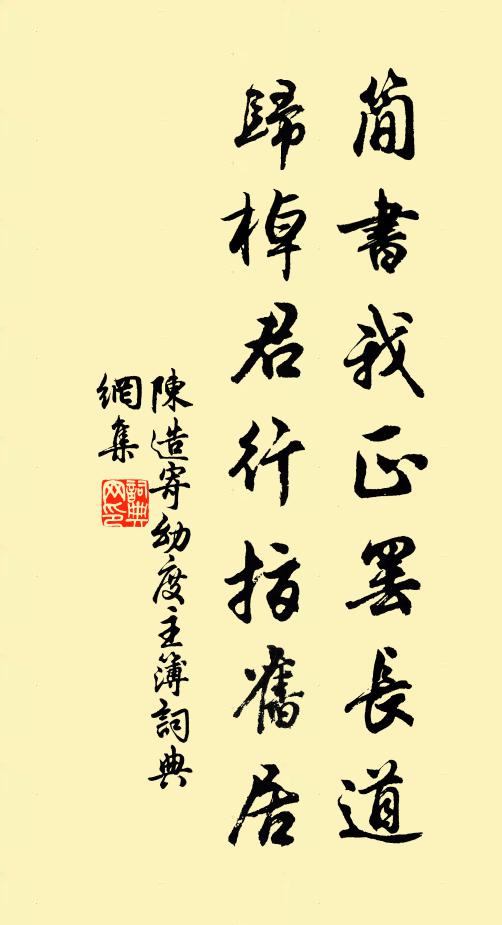 簡書我正罷長道
歸棹君行指舊居
陳造寄幼度主簿詞典
網集
詞典
网印